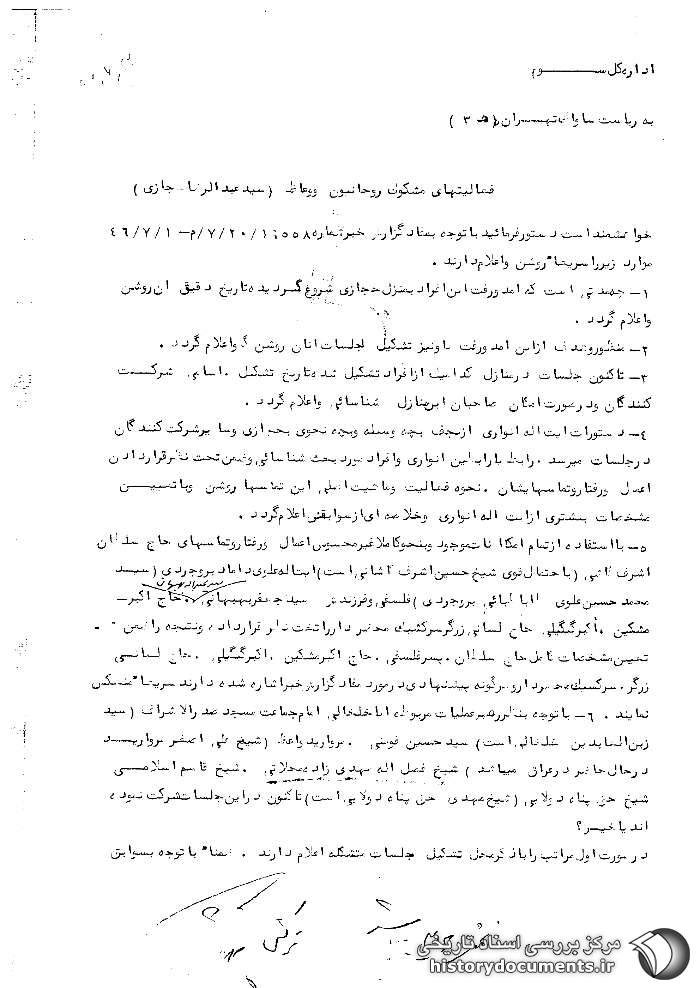 اداره کل ســـــــوم
به ریاست ساواک تهـــران (ﻫ ۳ )
فعالیتهای مشکوک روحانیون ووعاظ (سید عبدالرضا حجازی )
خواهشمند است دستور فرمائید با توجه بمفاد گزارش خبر شماره ۷/۲۰/۱۶۵۵۸/م – ۴۶/۷/۱
موارد زیررا سریعا" روشن واعلام دارند .
۱– جهت است که امد ورفت این افراد بمنزل حجازی شروع گردیده تاریخ دقیق ان روشن
واعلام گردد .
۲– منظور وهدف ازاین امد ورفت ها ونیز تشکیل جلسات انان روشن واعلام گردد .
۳– تاکنون جلسات در منازل کدامیک ازافراد تشکیل شده تاریخ تشکیل ، اسامی شرکـــت
کنندگان ودر صورت امکان صاحبان این منازل شناسائی واعلام گردد .
۴– دستورات ایت اله انواری ازنجف بچه وسیله وبچه نحوی بحجازی وسایر شرکت کنندگان
در جلسات میرسد . رابط یا رابطین انواری وافراد مورد بحث شناسائی وضمن تحت نظر قراردادن
اعمال ورفتار وتماسهایشان . نحوه فعالیت وماهیت اصلی این تماسها روشن وبا تعییـــن
مشخصات بیشتری ازایت اله انواری وخلاصه ای از سوابقش اعلام گردد .
۵– با استفاده ازتمام امکانات موجود وبنحو کاملا غیر محسوس اعمال ورفتار وتماسهای حاج سلطان
اشرف کاشی (با حتمال قوی شیخ حسین اشرف کاشانی است) ایت اله علوی داماد بروجردی (سیـــد
محمد حسین علوی طباطبائی بروجردی ) فلسفی وفرزندش سید جعفر بهبهانی ، حاج اکبر –
مشکین ، اکبر گیگیلی حاج لسانی زرگر سرکشیک محضر دار را تحت نظر قرار داده ونتیجه را ضمن
تعیین مشخصات کامل حاج سلطان . پسر فلسفی . حاج اکبر مشکین . اکبر گیگیلی . حاج لسانــی
زرگر . سرکشیک محضر دار وهرگونه پیشنهادی در مورد مفاد گزارش خبر اشاره شده دارند سریعا" منعکس
نمایند . ۶– با توجه بنظریه رهبر عملیات مربوطه ایا خلخالی امام جماعت مسجد صدرالاشراف (سید
زین العابدین خلخالی است) سید حسین قومشی . مروارید واعظ (شیخ علی اصغر مرواریـــد
در حال حاضر در عراق میباشد ) شیخ فضل اله مهدی زاده محلاتی . شیخ قاسم اسلامـــی
شیخ حق پناه دولابی (شیخ مهدی حق پناه دولابی است) تاکنون در این جلسات شرکت نموده
اند یا خیـــر ؟
در صورت اول مراتب را با ذکر محل تشکیل جلسات متشکله اعلام دارند . ضمنا" با توجه بسوابق
مرکز بررسی اسناد تاریخی
historydocuments.ir